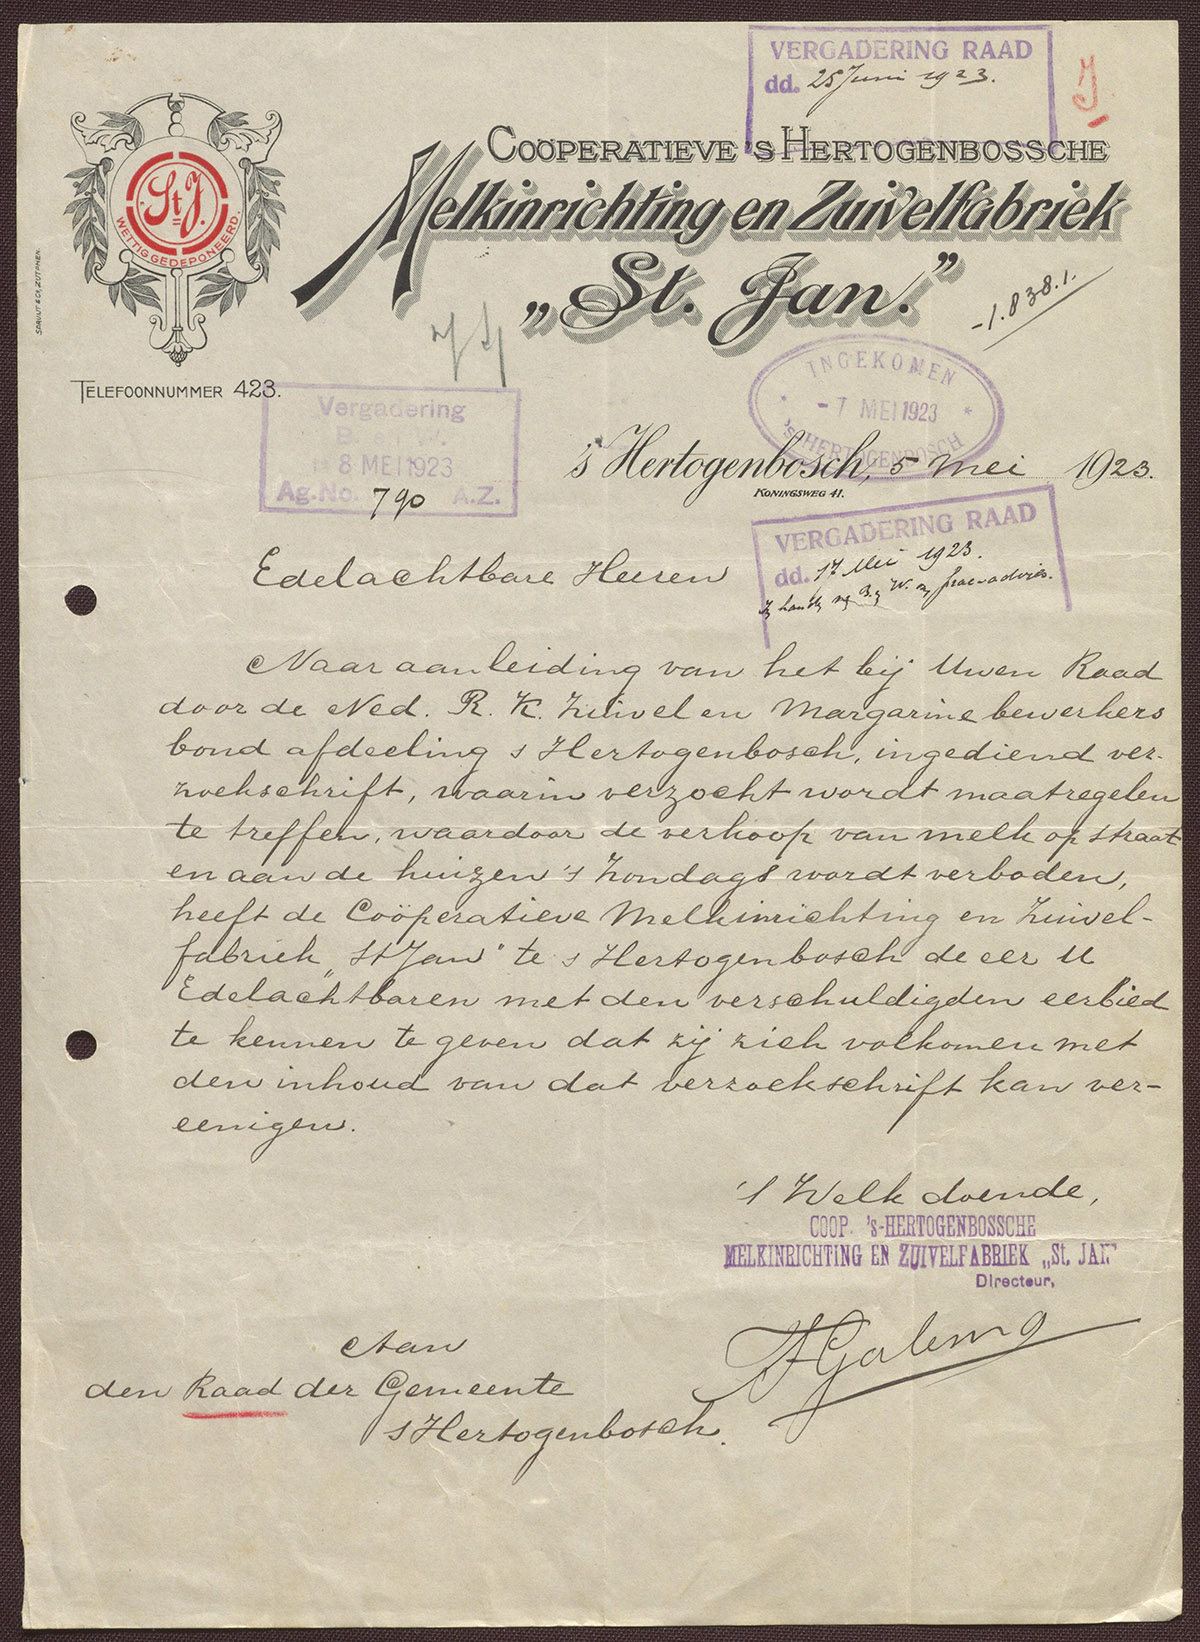 VERGADERING RAAD
dd. 25 Juni 1923.
COÖPERATIEVE 'S HERTOGENBOSSCHE
Melkinrichting en Zuivelfabriek
„St. Jan.”
St. J.
WETTIG GEDEPONEERD.
SPRUIJT & Cº, ZUTPHEN.
-1.838.1.
TELEFOONNUMMER 423.
INGEKOMEN
- 7 MEI 1923
'S HERTOGENBOSCH
Vergadering
B. en W.
8 MEI 1923
Ag. No. 790 A.Z.
's Hertogenbosch, 5 Mei 1923.
KONINGSWEG 41.
VERGADERING RAAD
dd. 17 Mei 1923.
B. W. praeadvies.
Edelachtbare Heeren
Naar aanleiding van het bij Uwen Raad
door de Ned. R. K. Zuivel en Margarine bewerkers
bond afdeeling s Hertogenbosch, ingediend ver-
zoekschrift, waarin verzocht wordt maatregelen
te treffen, waardoor de verkoop van melk op straat
en aan de huizen 's Zondags wordt verboden,
heeft de Coöperatieve Melkinrichting en Zuivel-
fabriek „St Jan" te s Hertogenbosch de eer U
Edelachtbaren met den verschuldigden eerbied
te kennen te geven dat zij zich volkomen met
den inhoud van dat verzoekschrift kan ver-
eenigen.
't Welk doende,
COOP. 's-HERTOGENBOSSCHE
MELKINRICHTING EN ZUIVELFABRIEK „St. JAN"
Directeur,
Aan
den Raad der Gemeente
s Hertogenbosch.